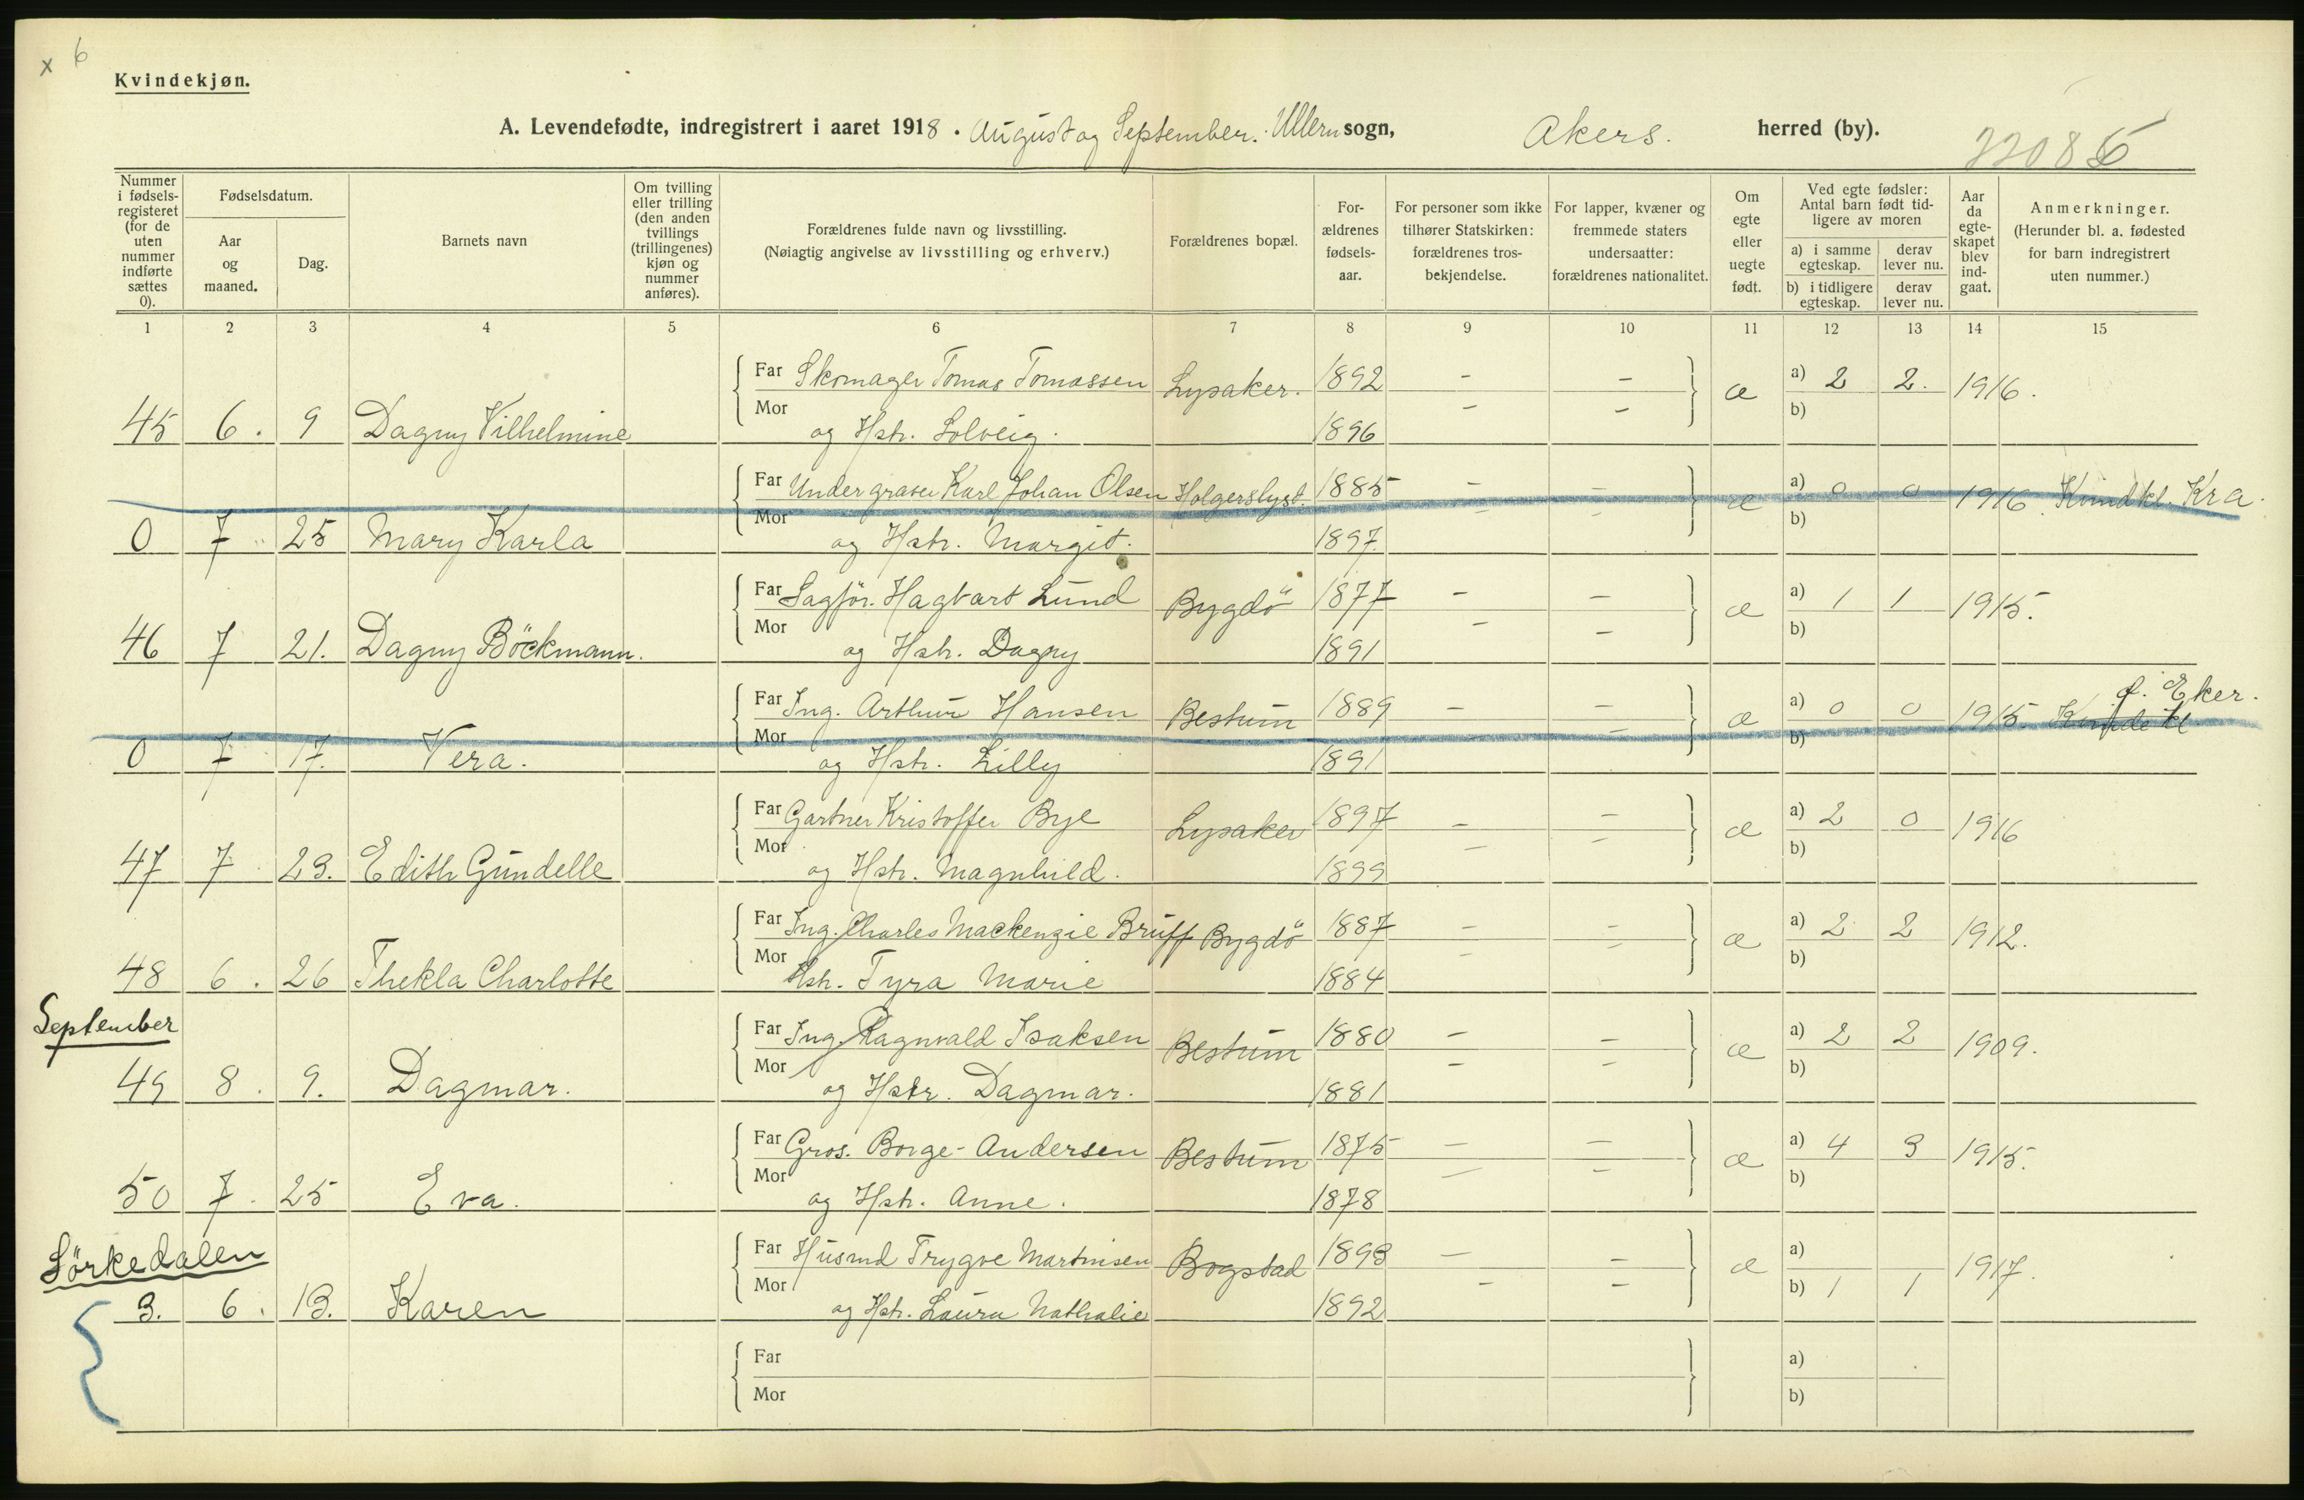 x 6
Kvindekjøn.
A. Levendefødte, indregistrert i aaret 1918. August og September. Ullern sogn, Akers. herred (by).
Nummer i fødselsregisteret (for de uten nummer indførte sættes 0).
Fødselsdatum.
Aar og maaned.
Dag.
Barnets navn
Om tvilling eller trilling (den anden tvillings (trillingenes) kjøn og nummer anføres).
Forældrenes fulde navn og livsstilling.
(Nøiagtig angivelse av livsstilling og erhverv.)
Forældrenes bopæl.
Forældrenes fødselsaar.
For personer som ikke tilhører Statskirken: forældrenes trosbekjendelse.
For lapper, kvæner og fremmede staters undersaatter: forældrenes nationalitet.
Om egte eller uegte født.
Ved egte fødsler: Antal barn født tidligere av moren
a) i samme egteskap. derav lever nu.
b) i tidligere egteskap. derav lever nu.
Aar da egteskapet blev indgaat.
Anmerkninger.
(Herunder bl. a. fødested for barn indregistrert uten nummer.)
1 2 3 4 5 6 7 8 9 10 11 12 13 14 15
Far Skomager Tomas Tomassen Lysaker. 1892 - - æ a) 2 2. 1916.
Mor - - b)
45 6. 9 Dagny Vilhelmine og Hstr. Solveig. 1896
Far Undergraver Karl Johan Olsen Holgerslyst. 1885 - - æ a) 0 0 1916. Kvindkl. Kra.
Mor - - b)
0 7 25 Mary Karla og Hstr. Margit. 1897.
Far Sagför. Hagbart Lund Bygdö 1877 - - æ a) 1 1 1915.
Mor - - b)
46 7 21. Dagny Böckmann. og Hstr. Dagny 1891
f. Eker.
Far Ing. Arthur Hansen Bestum 1889 - - æ a) 0 0 1915. Kvindekl
Mor - - b)
0 7 17. Vera. og Hstr. Lilly 1891
Far Gartner Kristoffer Bye Lysaker 1897 - - æ a) 2 0 1916
Mor - - b)
47 7 23. Edith Gundelle og Hstr. Magnhild. 1899
Far Ing. Charles Mackenzie Bruff Bygdö 1887 - - æ a) 2 2 1912.
Mor - - b)
48 6. 26 Thekla Charlotte Hstr. Tyra Marie 1884
September
Far Ing. Ragnvald Isaksen Bestum 1880 - - æ a) 2 2 1909.
Mor - - b)
49 8. 9. Dagmar. og Hstr. Dagmar. 1881
Far Gros. Borge-Andersen Bestum 1875 - - æ a) 4 3 1915.
Mor - - b)
50 7. 25 Eva. og Hstr. Anne. 1878
Sörkedalen
Far Husmd Trygve Martinsen Bogstad 1893 - - æ a) 1917.
Mor - - b) 1 1
3. 6. 13. Karen og Hstr. Laura Nathalie 1892
Far a)
Mor b)